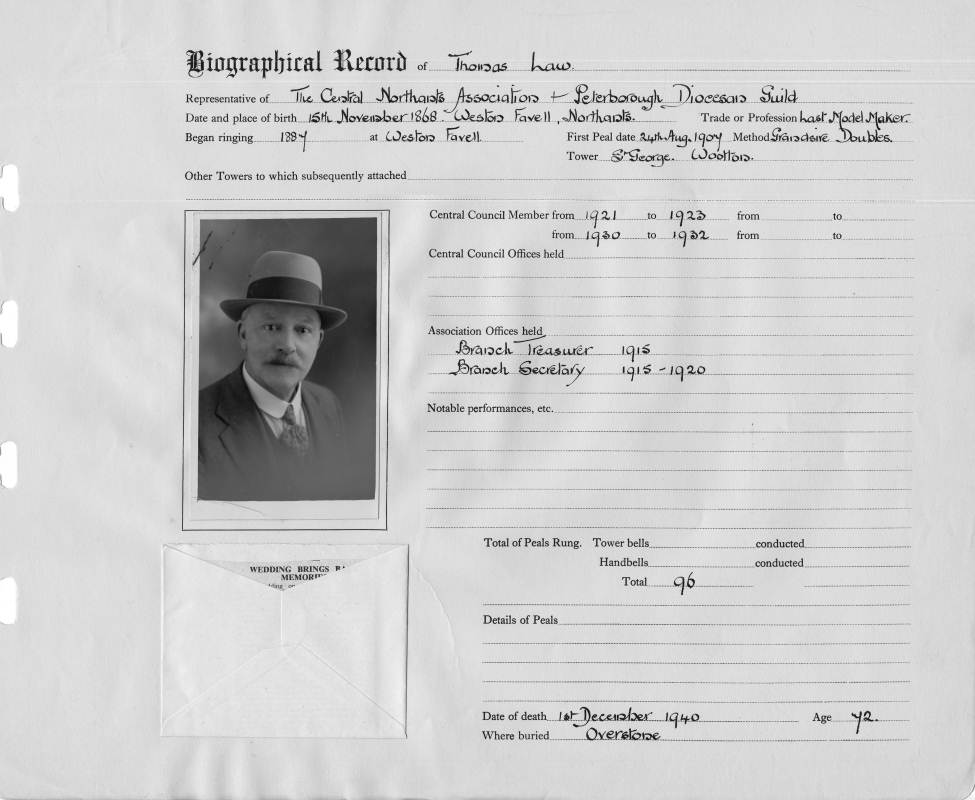 Biographical Record of Thomas Law.
Representative of The Central Northants Association + Peterborough Diocesan Guild
Date and place of birth 15th November 1868. Weston Favell, Northants. Trade or Profession Last Model Maker.
Began ringing 1887 at Weston Favell. First Peal date 24th Aug. 1907 Method Grandsire Doubles.
Tower St George. Wootton.
Other Towers to which subsequently attached
Central Council Member from 1921 to 1923 from to
from 1930 to 1932 from to
Central Council Offices held
Association Offices held
Branch Treasurer 1915
Branch Secretary 1915 - 1920
Notable performances, etc.
Total of Peals Rung. Tower bells conducted
Handbells conducted
Total 96
WEDDING BRINGS
Details of Peals
Date of death 1st December 1940 Age 72.
Where buried Overstone